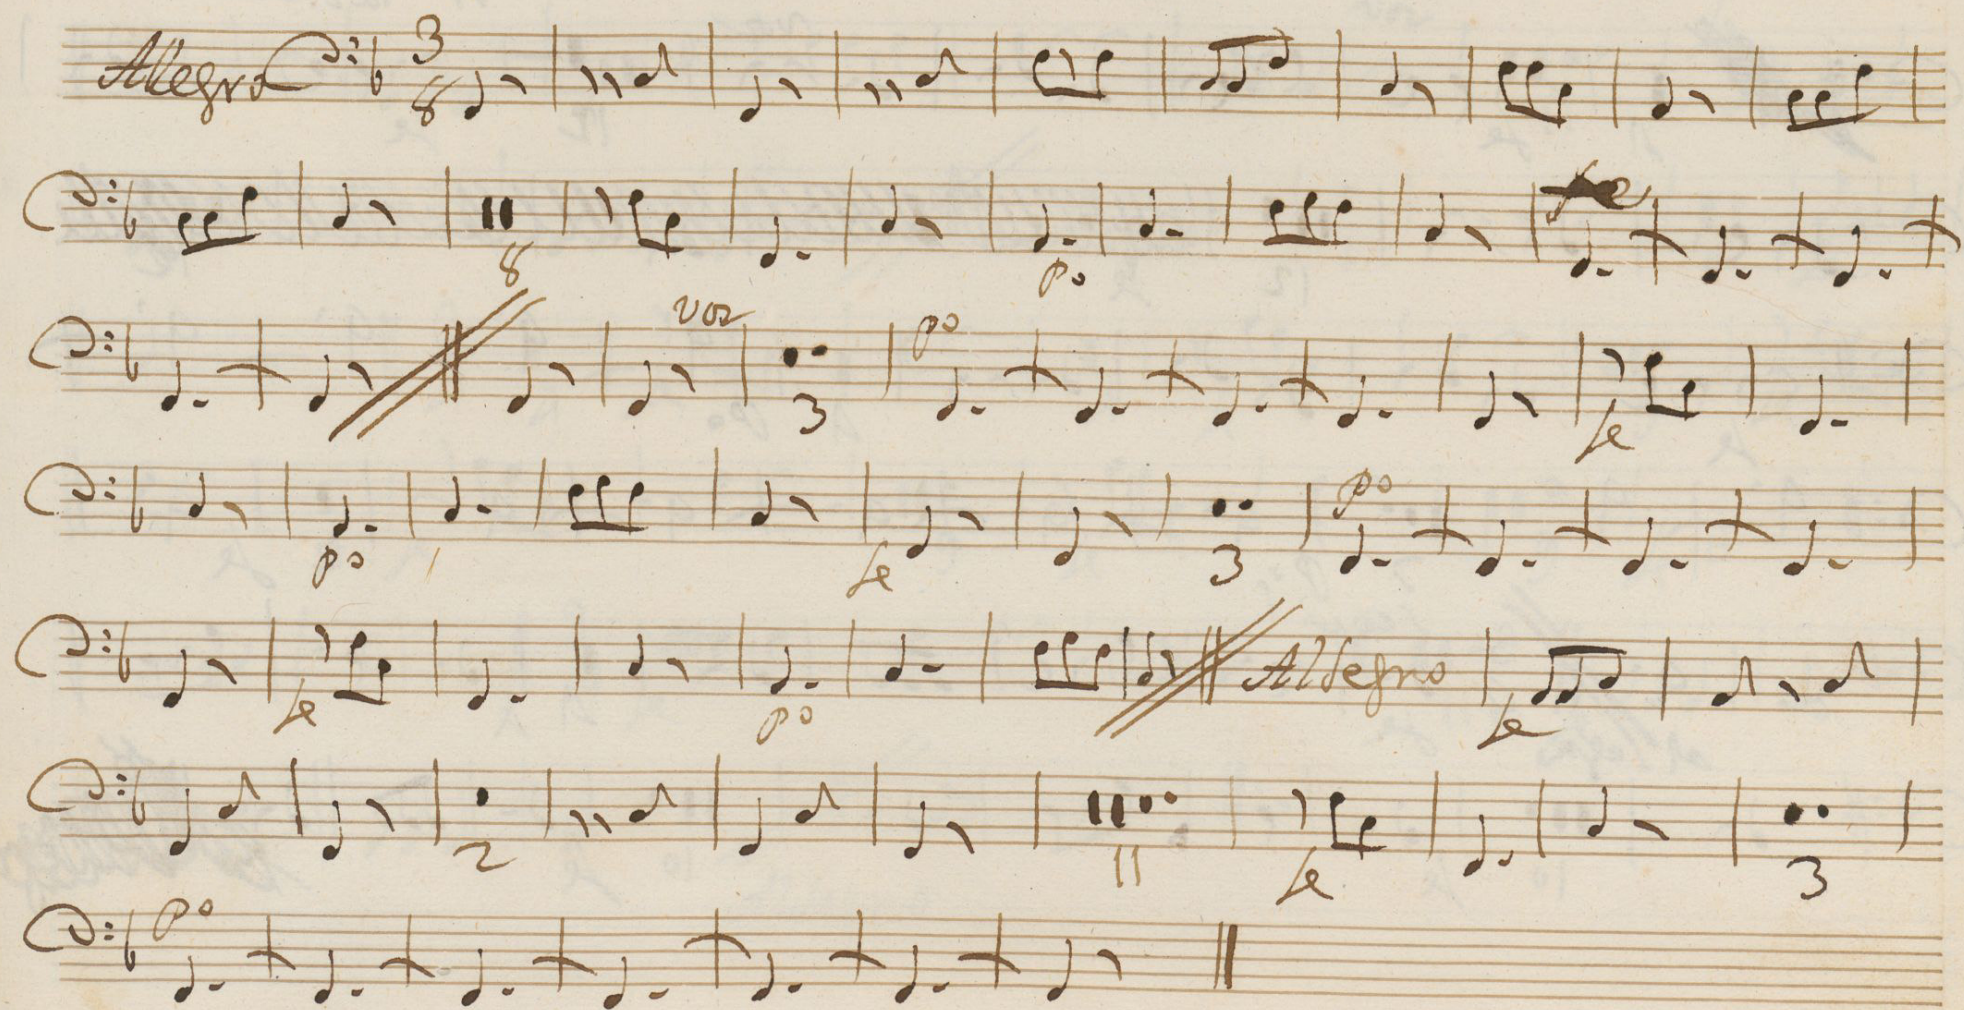 Allegro 3
8
8 po
voz po
3 fe
po fe 3 po
fe po Allegro fe
2 11 fe 3
po